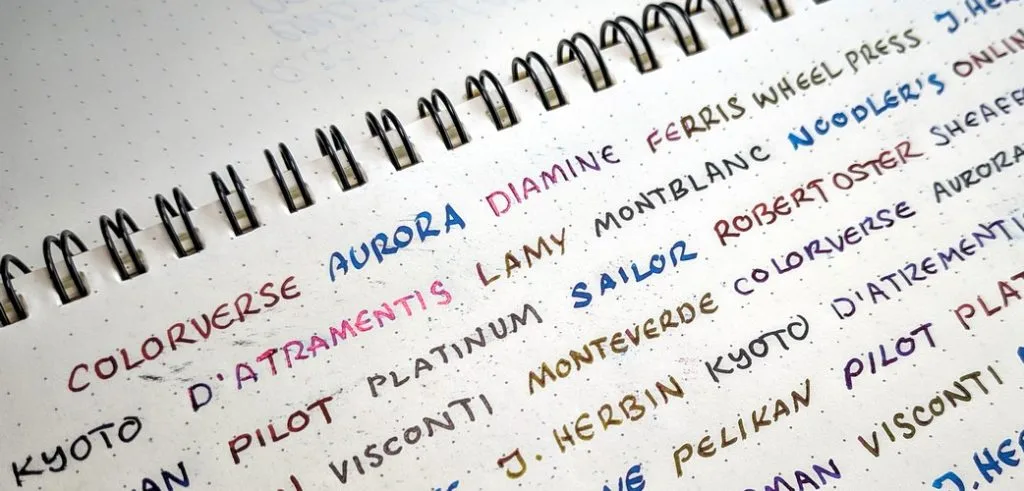 COLORVERSE AURORA DIAMINE FERRIS WHEEL PRESS J. HE
KYOTO D'ATRAMENTIS LAMY MONTBLANC NOODLER'S ONLIN
AN PILOT PLATINUM SAILOR ROBERT OSTER SHEAFF
VISCONTI MONTEVERDE COLORVERSE AURORA
J. HERBIN KYOTO D'ATIREMENTI
VE PELIKAN PILOT PLAT
MAN VISCONTI
J. HE